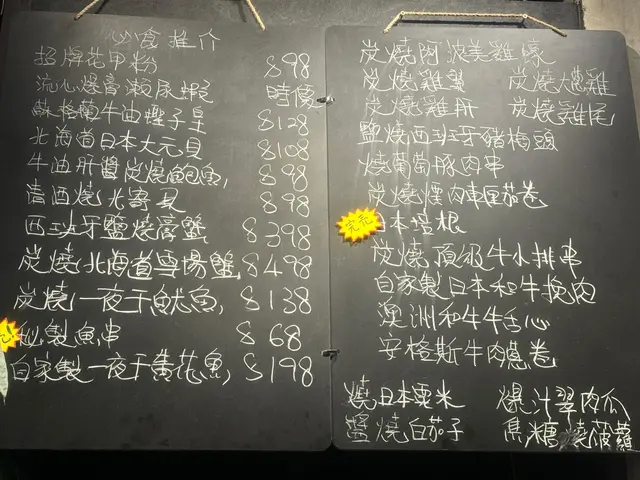 必食推介
招牌花甲粉 $98
流心爆膏瀨尿蝦 時價
蘇格蘭牛油蟶子皇 $128
北海道日本大元貝 $108
牛油肝醬炭燒鮑魚 $98
清酒燒北寄貝 $98
西班牙鹽燒膏蟹 $398
炭燒北海道雪場蟹 $498
炭燒一夜干魷魚 $138
秘製魚串 $68
自家製一夜干黃花魚 $198
炭燒阿波美雞
炭燒雞 炭燒大蔥雞
炭燒雞肝 炭燒雞尾
鹽燒西班牙豬梅頭
燒葡萄豚肉串
炭燒煙肉車厘茄卷
售完 日本培根
炭燒頂級牛小排串
自家製日本和牛挽肉
澳洲和牛牛舌心
安格斯牛肉蔥卷
燒日本粟米 爆汁翠肉瓜
鹽燒白茄子 焦糖燒菠蘿